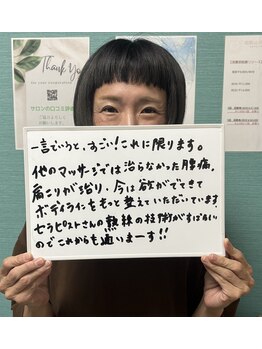 Thank You
サロンの口コミ評価
一言でいうと、すごい!これに限ります。
他のマッサージでは治らなかった腰痛、
肩こりが治り、今は欲がでてきて
ボディラインをもっと整えていただいています。
セラピストさんの熟練の技術がすばらしい
のでこれからも通いまーす!!